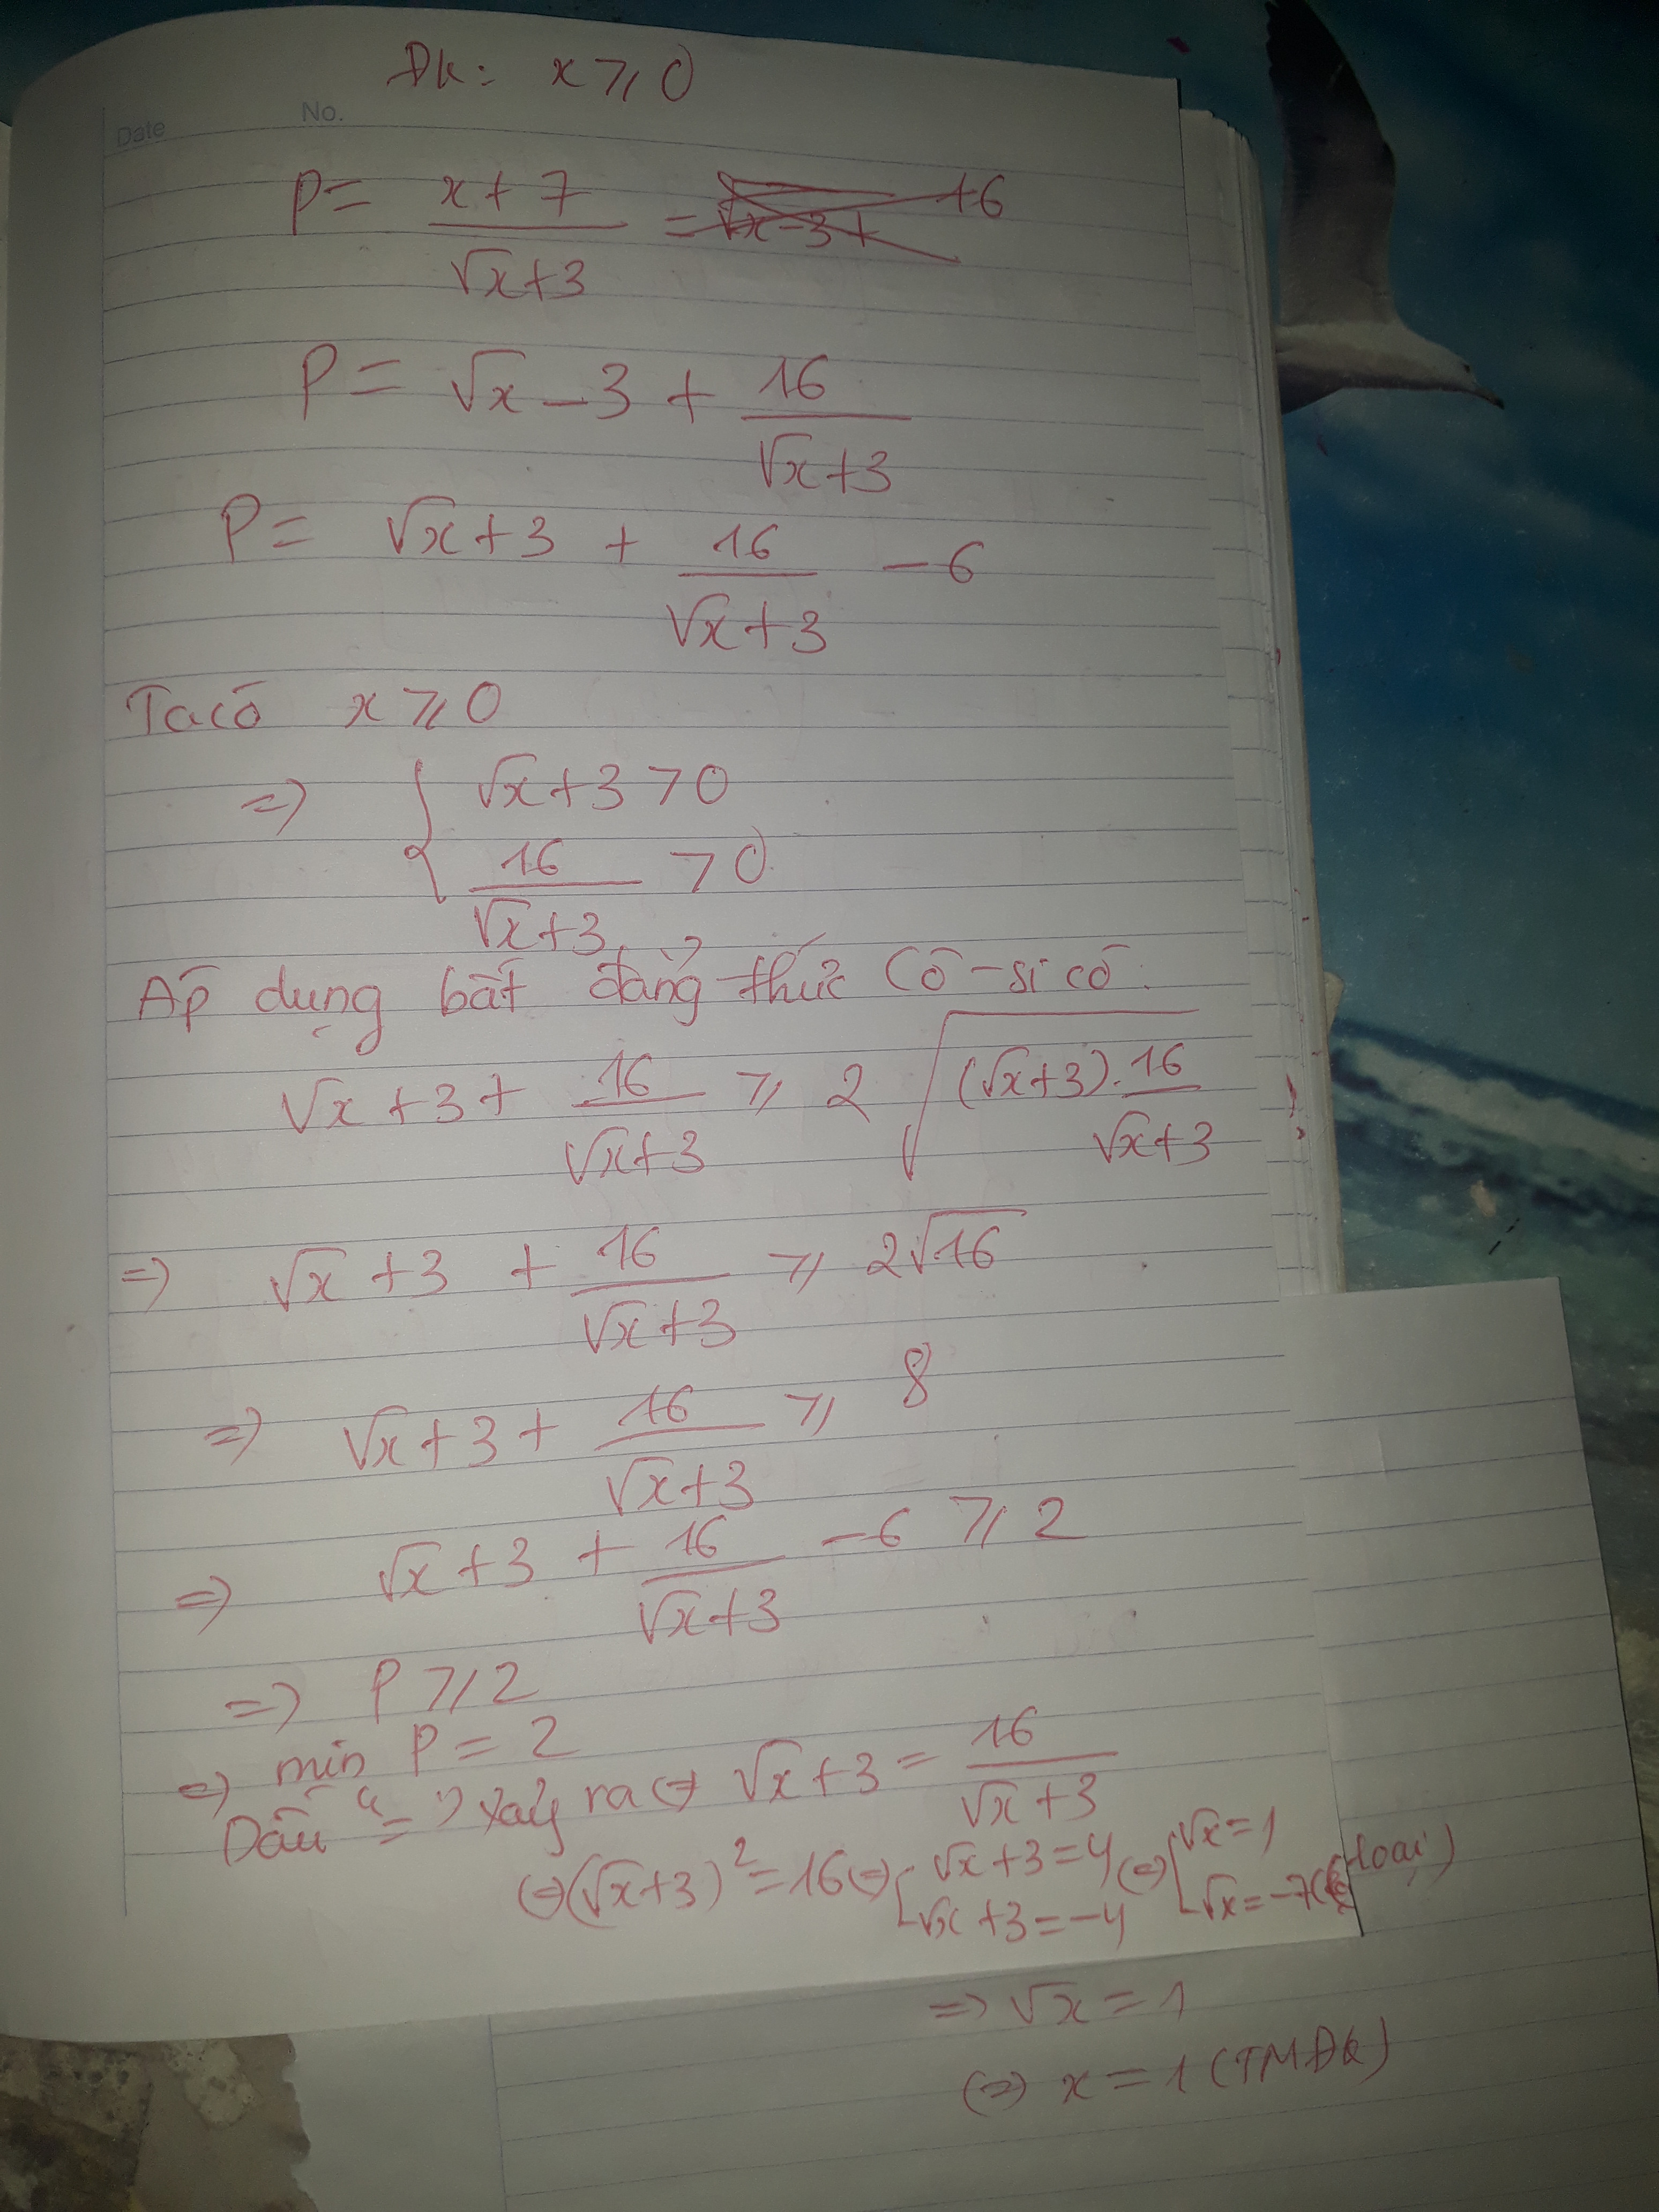 ĐK: x ⩾ 0
Date No.
P = (x + 7)/(√x + 3) = √x - 3 + 16
P = √x - 3 + 16/(√x + 3)
P = √x + 3 + 16/(√x + 3) - 6
Ta có x ⩾ 0
=> { √x + 3 > 0
16/(√x + 3) > 0
Áp dụng bất đẳng thức Cô-si có:
√x + 3 + 16/(√x + 3) ⩾ 2√((√x + 3) . 16/(√x + 3))
=> √x + 3 + 16/(√x + 3) ⩾ 2√16
=> √x + 3 + 16/(√x + 3) ⩾ 8
=> √x + 3 + 16/(√x + 3) - 6 ⩾ 2
=> P ⩾ 2
=> min P = 2
Dấu "=" xảy ra <=> √x + 3 = 16/(√x + 3)
<=> (√x + 3)² = 16 <=> [ √x + 3 = 4 <=> [ √x = 1
√x + 3 = -4 √x = -7 (loại)
=> √x = 1
<=> x = 1 (TMĐK)